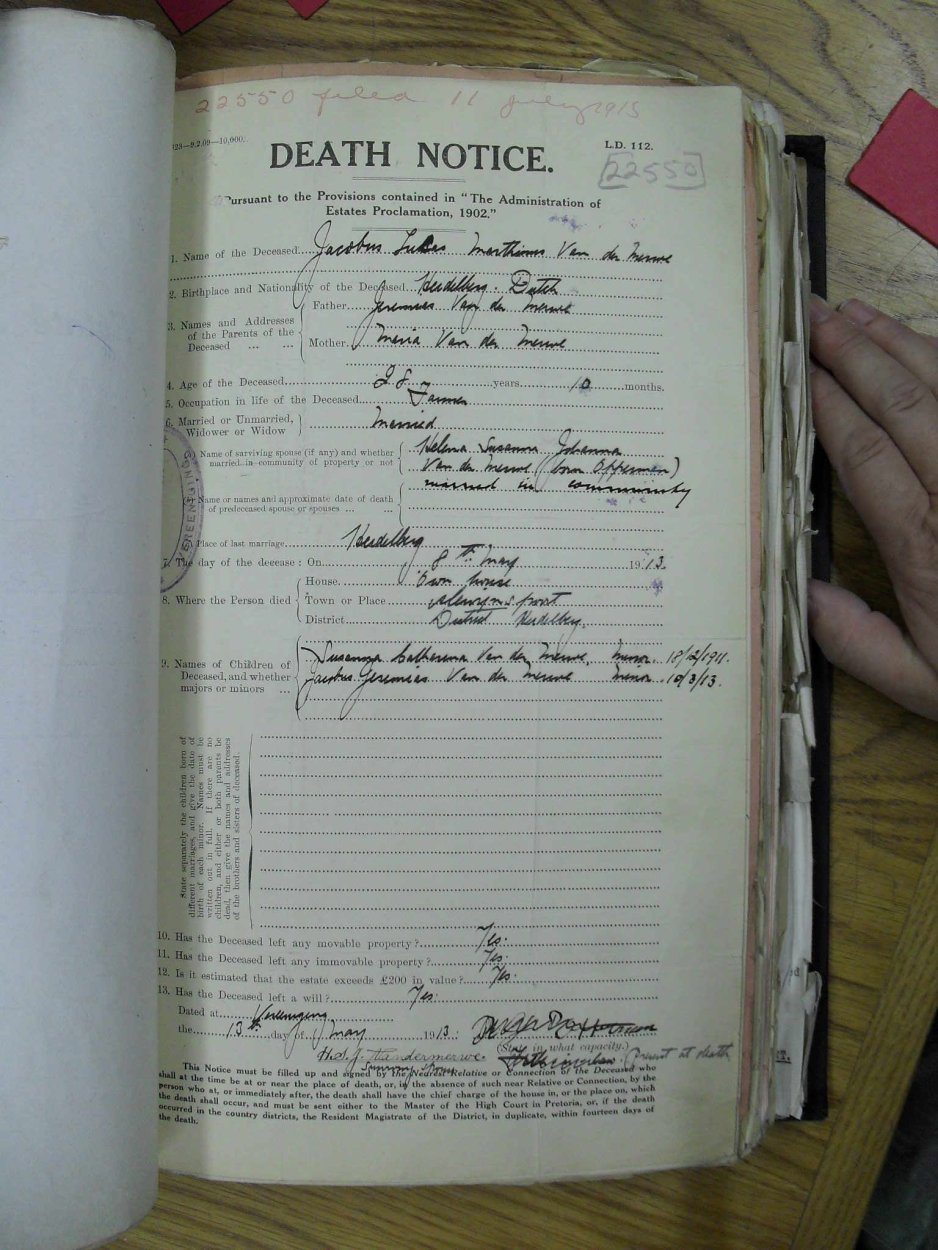 22550 filed 11 July 1915
323—9.2.09—10,000.
L.D. 112.
DEATH NOTICE.
[22550]
Pursuant to the Provisions contained in “The Administration of
Estates Proclamation, 1902.”
1. Name of the Deceased Jacobus Lukas Marthinus Van der Merwe
2. Birthplace and Nationality of the Deceased Heidelberg. Dutch
3. Names and Addresses of the Parents of the Deceased ... ...
Father Jeremias Van der Merwe
Mother Maria Van der Merwe
4. Age of the Deceased 28 years 10 months.
5. Occupation in life of the Deceased Farmer
6. Married or Unmarried, Widower or Widow Married
Name of surviving spouse (if any) and whether married in community of property or not
Helena Susanna Johanna
Van der Merwe (born Opperman)
married in community
Name or names and approximate date of death of predeceased spouse or spouses ... ...
Place of last marriage Heidelberg
7. The day of the decease : On 8th May 1913.
8. Where the Person died
House Own house
Town or Place
District District Heidelberg.
9. Names of Children of Deceased, and whether majors or minors ...
Susanna Catherina Van der Merwe, minor. 18/2/1911.
Jacobus Jeremias Van der Merwe minor. 10/3/13.
State separately the children born of
different marriages, and give the date of
birth of each minor. Names must be
written out in full. If there are no
children, and either or both parents be
dead, then give the names and addresses
of the brothers and sisters of deceased.
10. Has the Deceased left any movable property? Yes.
11. Has the Deceased left any immovable property? Yes.
12. Is it estimated that the estate exceeds £200 in value? Yes.
13. Has the Deceased left a will? Yes.
Dated at Vereeniging
the 13th day of May 1913.
(State in what capacity.)
H.S.J. Vandermerwe. present at death
Surviving Spouse
This Notice must be filled up and signed by the Nearest Relative or Connection of the Deceased who
shall at the time be at or near the place of death, or, in the absence of such near Relative or Connection, by the
person who at, or immediately after, the death shall have the chief charge of the house in, or the place on, which
the death shall occur, and must be sent either to the Master of the High Court in Pretoria, or, if the death
occurred in the country districts, the Resident Magistrate of the District, in duplicate, within fourteen days of
the death.
VEREENIGING